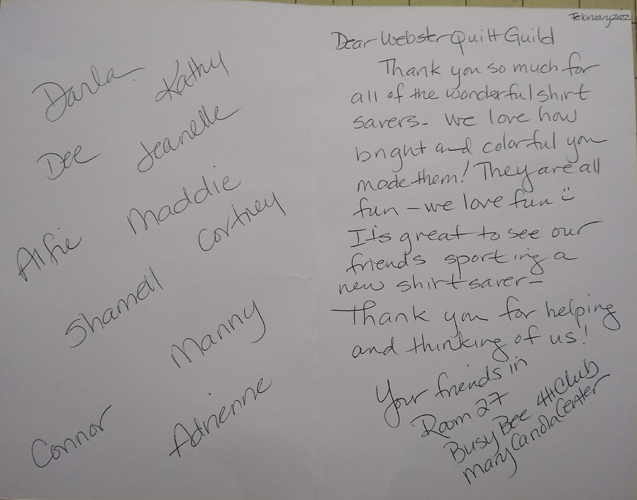 Darla Kathy
Dee Jeanelle
Alfie Maddie
Shamell Cortney
Manny
Connor Adrienne
February 2022
Dear Webster Quilt Guild
Thank you so much for
all of the wonderful shirt
savers - we love how
bright and colorful you
made them! They are all
fun - we love fun
It's great to see our
friends sporting a
new shirt saver -
Thank you for helping
and thinking of us!
Your friends in
Room 27
Busy Bee 4H Club
Mary Cariola Center